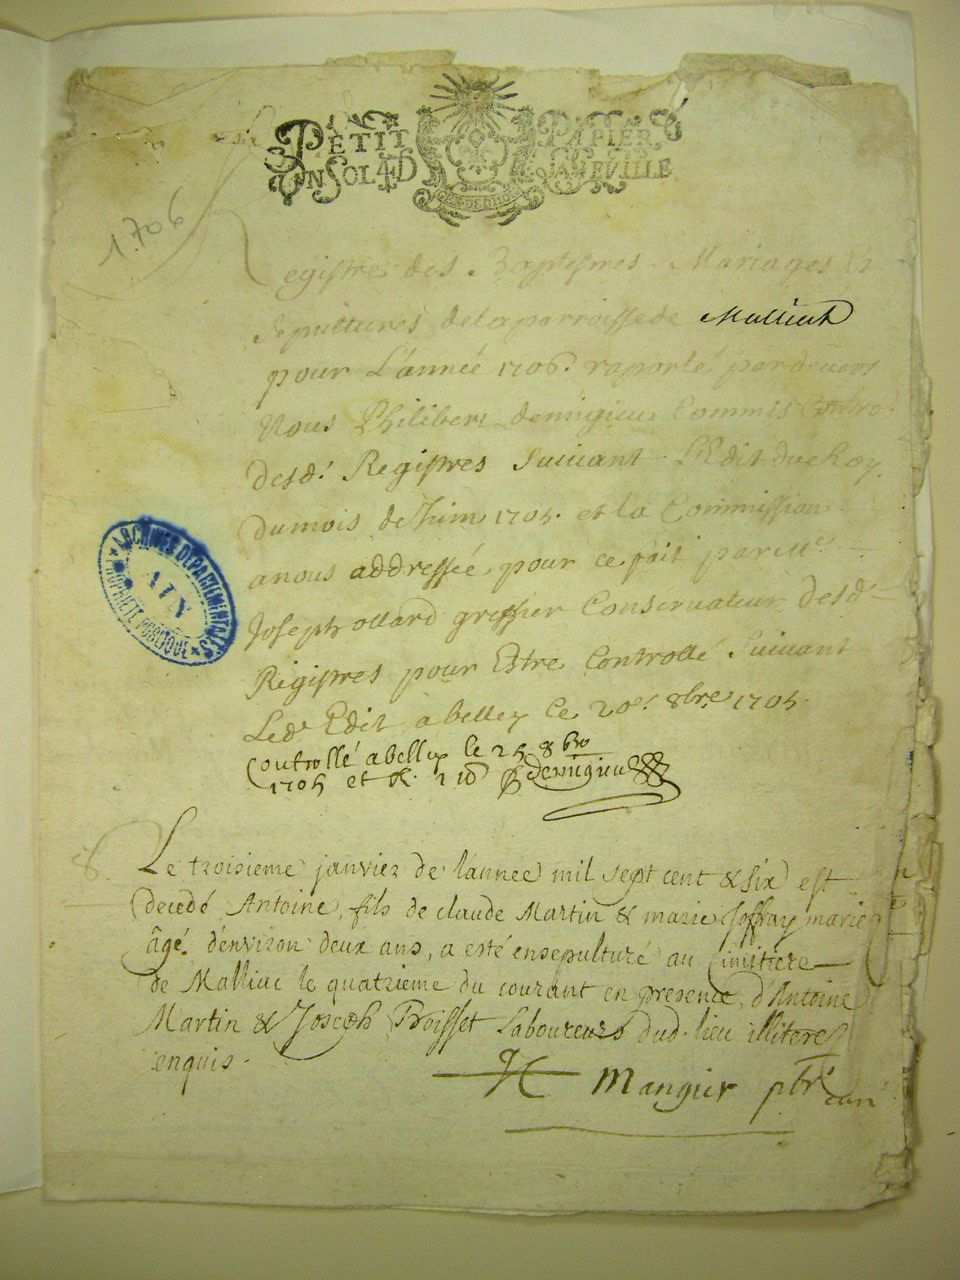 PETIT PAPIER
UN SOL 4 D GÑEVILLE
1706
Registre des Baptesmes Mariages Et
Sepultures de la parroisse de Malliat
pour L'année 1706. raporté pardevers
Nous Philibert demigieu Commis Contro.
desd. Registres Suivant L'Edit du Roy
du mois de Juin 1705. et la Commission
a nous addressée pour ce fait par Me
Joseph ollard greffier Conservateur desd.
Régistres pour Estre Controllé Suivant
Led. Edit a belley Ce 20e. 8bre 1705
Controllé a belley le 25 8bre
1705 et demigieu
ARCHIVES DEPARTEMENTALES
AIN
PROPRIETE PUBLIQUE
8.
Le troisieme janvier de l'année mil sept cent & six est
decedé Antoine, fils de claude Martin & marie Joffray mariés
âgé d'environ deux ans, a esté ensepulturé au Cimitiere
de Malliac le quatrieme du courant en presence d'Antoine
Martin & Joseph Troisset Laboureurs dud. lieu illiteres
enquis.
Mangier pbre curé